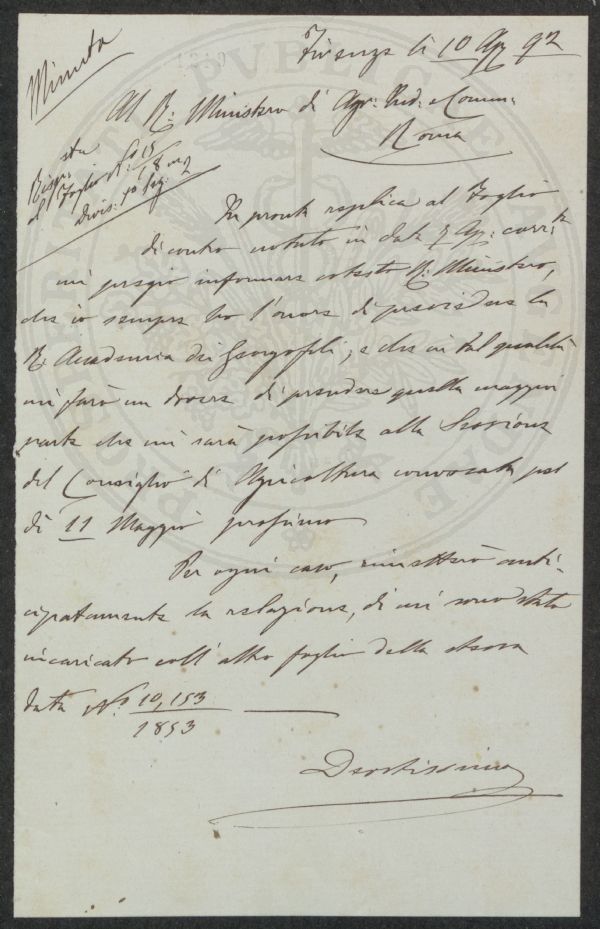 Minuta
Firenze lì 10 Ap. 92
Al R. Ministero di Agr. Ind. e Comm.
Roma
Rispsta
al Foglio N.º 15
Divis: 1ª Sez: 2
In pronta replica al Foglio
di contro notato in data 7 Ap: corrte
mi pregio informare cotesto R. Ministero,
che io sempre ho l'onore di presiedere la
R. Accademia dei Georgofili; e che in tal qualità
mi farò un dovere di prendere quella maggior
parte che mi sarà possibile alla Sessione
del Consiglio di Agricoltura convocata pel
dì 11 Maggio prossimo
Per ogni caso, rimetterò anti-
cipatamente la relazione, di cui sono stato
incaricato coll'altro foglio della stessa
data Nº 10,153
1853
Devotissimo
PVBLICAE
PROSPERITATI
AVGENDAE